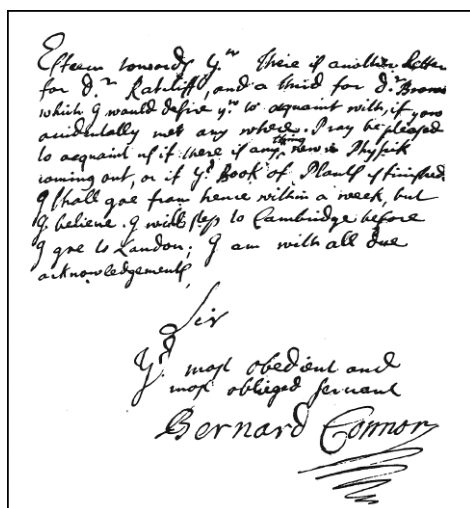 Esteem towards yᵘ. There is another letter
for d.ʳ Ratcliff, and a third for d.ʳ Brown
which I would desire yᵘ to acquaint with, if you
accidentally met any where. Pray be pleased
to acquaint us if there is any thing new in Physick
coming out, or if yʳ Book of Plants is finished.
I shall goe from hence within a week, but
I believe I will step to Cambridge before
I goe to London; I am with all due
acknowledgements,
Sir
Yʳ most obedient and
most obliged servant
Bernard Connor